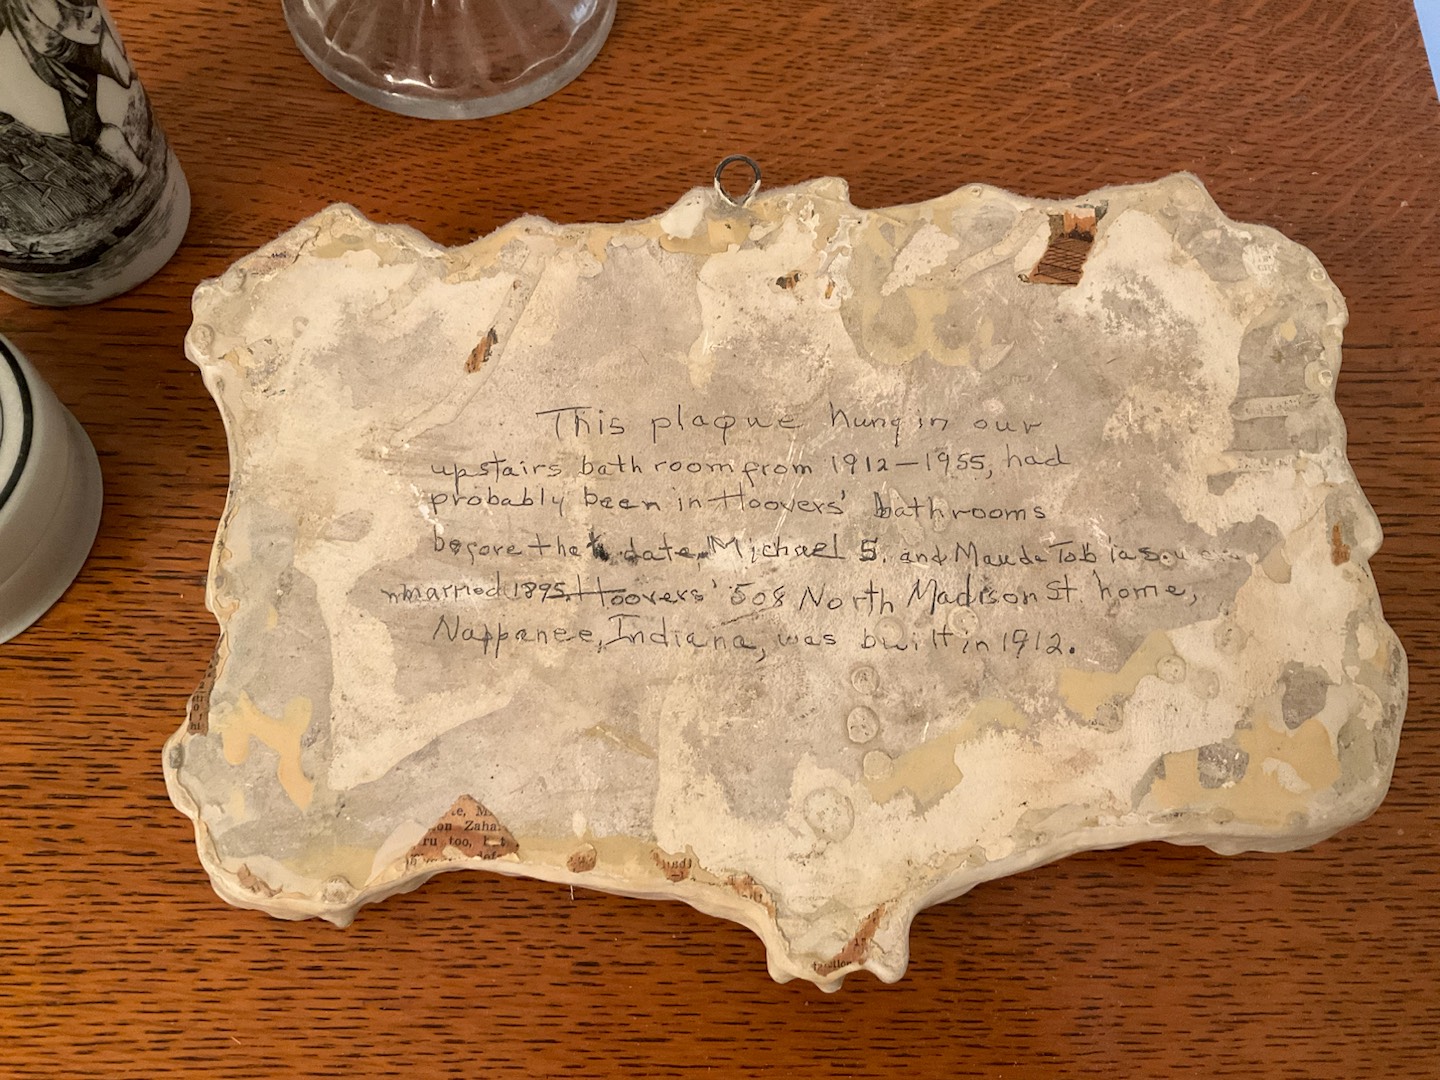 This plaque hung in our
upstairs bathroom from 1912-1955, had
probably been in Hoovers' bathrooms
before that date, Michael S. and Maude Tobias
married 1895. Hoovers' 508 North Madison St. home,
Nappanee, Indiana, was built in 1912.
te, M
on Zaha
ru too, but